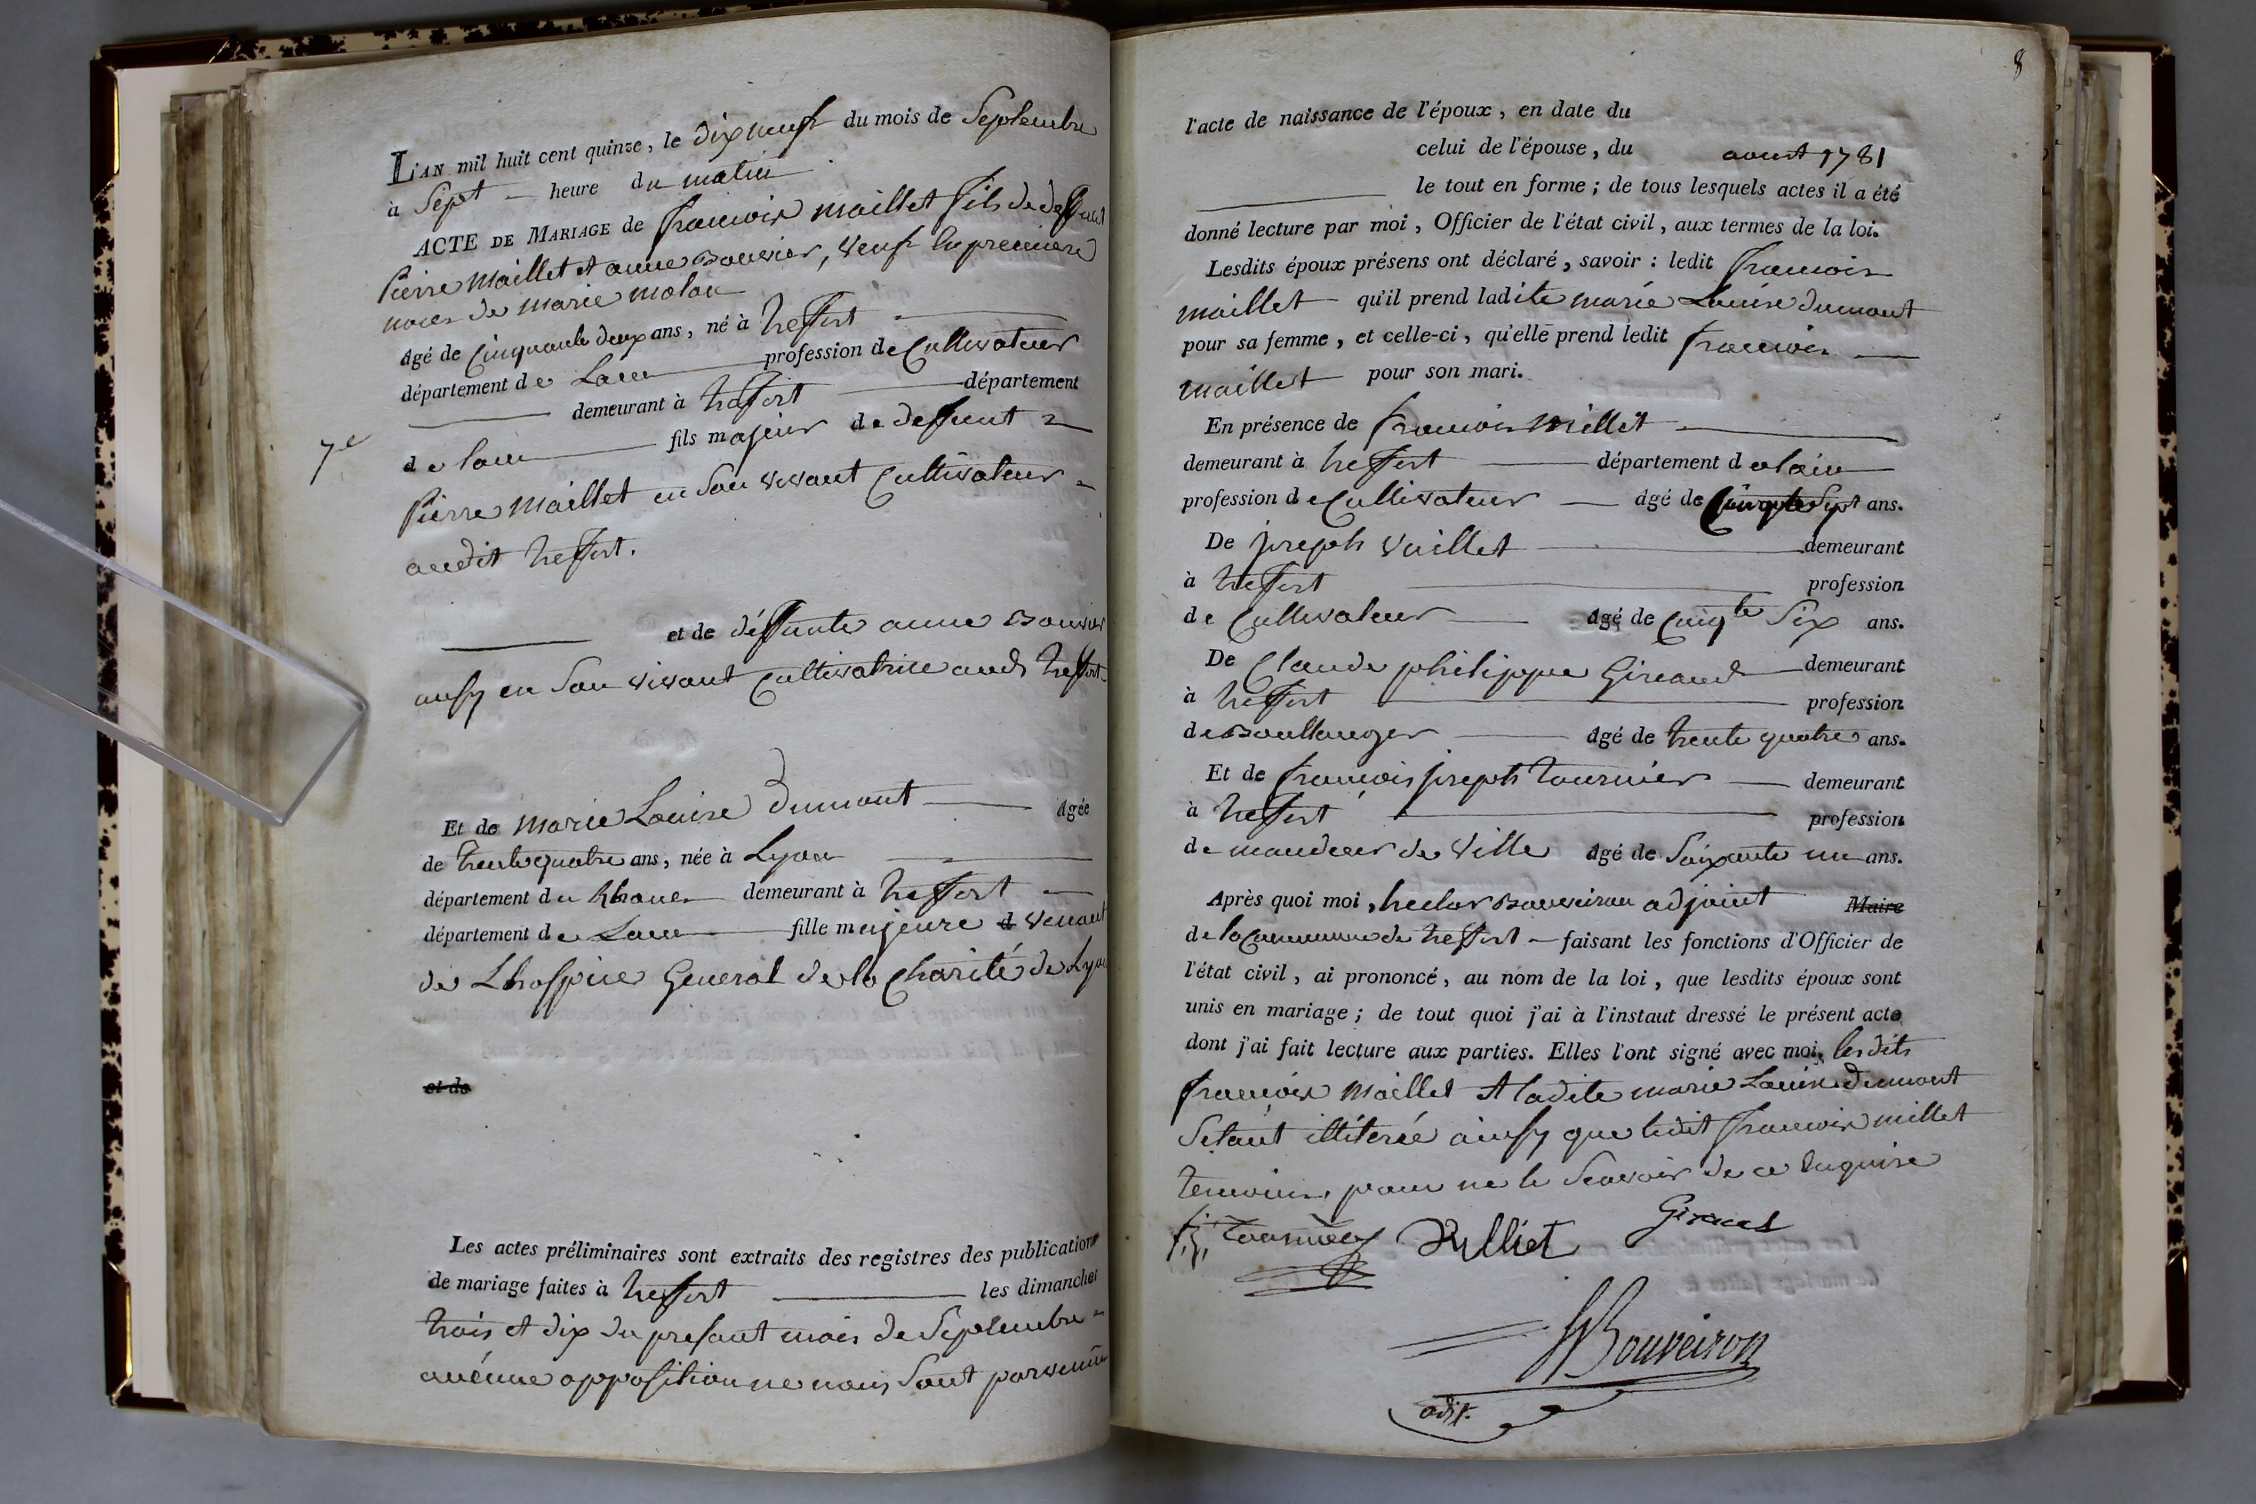 L'AN mil huit cent quinze, le dix neuf du mois de Septembre
à Sept heure du matin
ACTE DE MARIAGE de francois maillet fils de deffunt
Pierre Maillet et anne Bouvier, veuf en premiere
noces de marie molan
âgé de Cinquante deux ans, né à treffort
département de Lain profession de Cultivateur
demeurant à treffort département
7e
de lain fils majeur de deffunt
Pierre Maillet en son vivant Cultivateur
audit treffort.
et de déffunte anne Bouvier
aussy en son vivant Cultivatrice aud. treffort
Et de marie Louise dumont âgée
de trente quatre ans, née à Lyon
département du Rhone demeurant à treffort
département de Lain fille majeure d venant
de Lhospice General de la Charité de Lyon
et de
Les actes préliminaires sont extraits des registres des publications
de mariage faites à treffort les dimanches
trois et dix du present mois de Septembre
aucune opposition ne nous sont parvenue
8
l'acte de naissance de l'époux, en date du
celui de l'épouse, du aoust 1781
le tout en forme; de tous lesquels actes il a été
donné lecture par moi, Officier de l'état civil, aux termes de la loi.
Lesdits époux présens ont déclaré, savoir: ledit francois
maillet qu'il prend ladite marie Louise dumont
pour sa femme, et celle-ci, qu'elle prend ledit francois
maillet pour son mari.
En présence de francois Millet
demeurant à treffort département de lain
profession de Cultivateur âgé de Cinqte Sept ans.
De joseph Vuillet demeurant
à treffort profession
de Cultivateur âgé de Cinqte Six ans.
De Claude philippe Giraud demeurant
à treffort profession
de Boullanger âgé de trente quatre ans.
Et de francois joseph tournier demeurant
à treffort profession
de mandeur de Ville âgé de Soixante un ans.
Après quoi moi, hector Bouveiron adjoint Maire
de la Commune de treffort faisant les fonctions d'Officier de
l'état civil, ai prononcé, au nom de la loi, que lesdits époux sont
unis en mariage; de tout quoi j'ai à l'instant dressé le présent acte
dont j'ai fait lecture aux parties. Elles l'ont signé avec moi, lesdits
francois Maillet et ladite marie Louise dumont
Setant illiterée ainsy que ledit francois millet
temoins, pour ne le Scavoir de ce enquise
f.j. tournier Vulliet Giraud
HBouveiron
adjt.